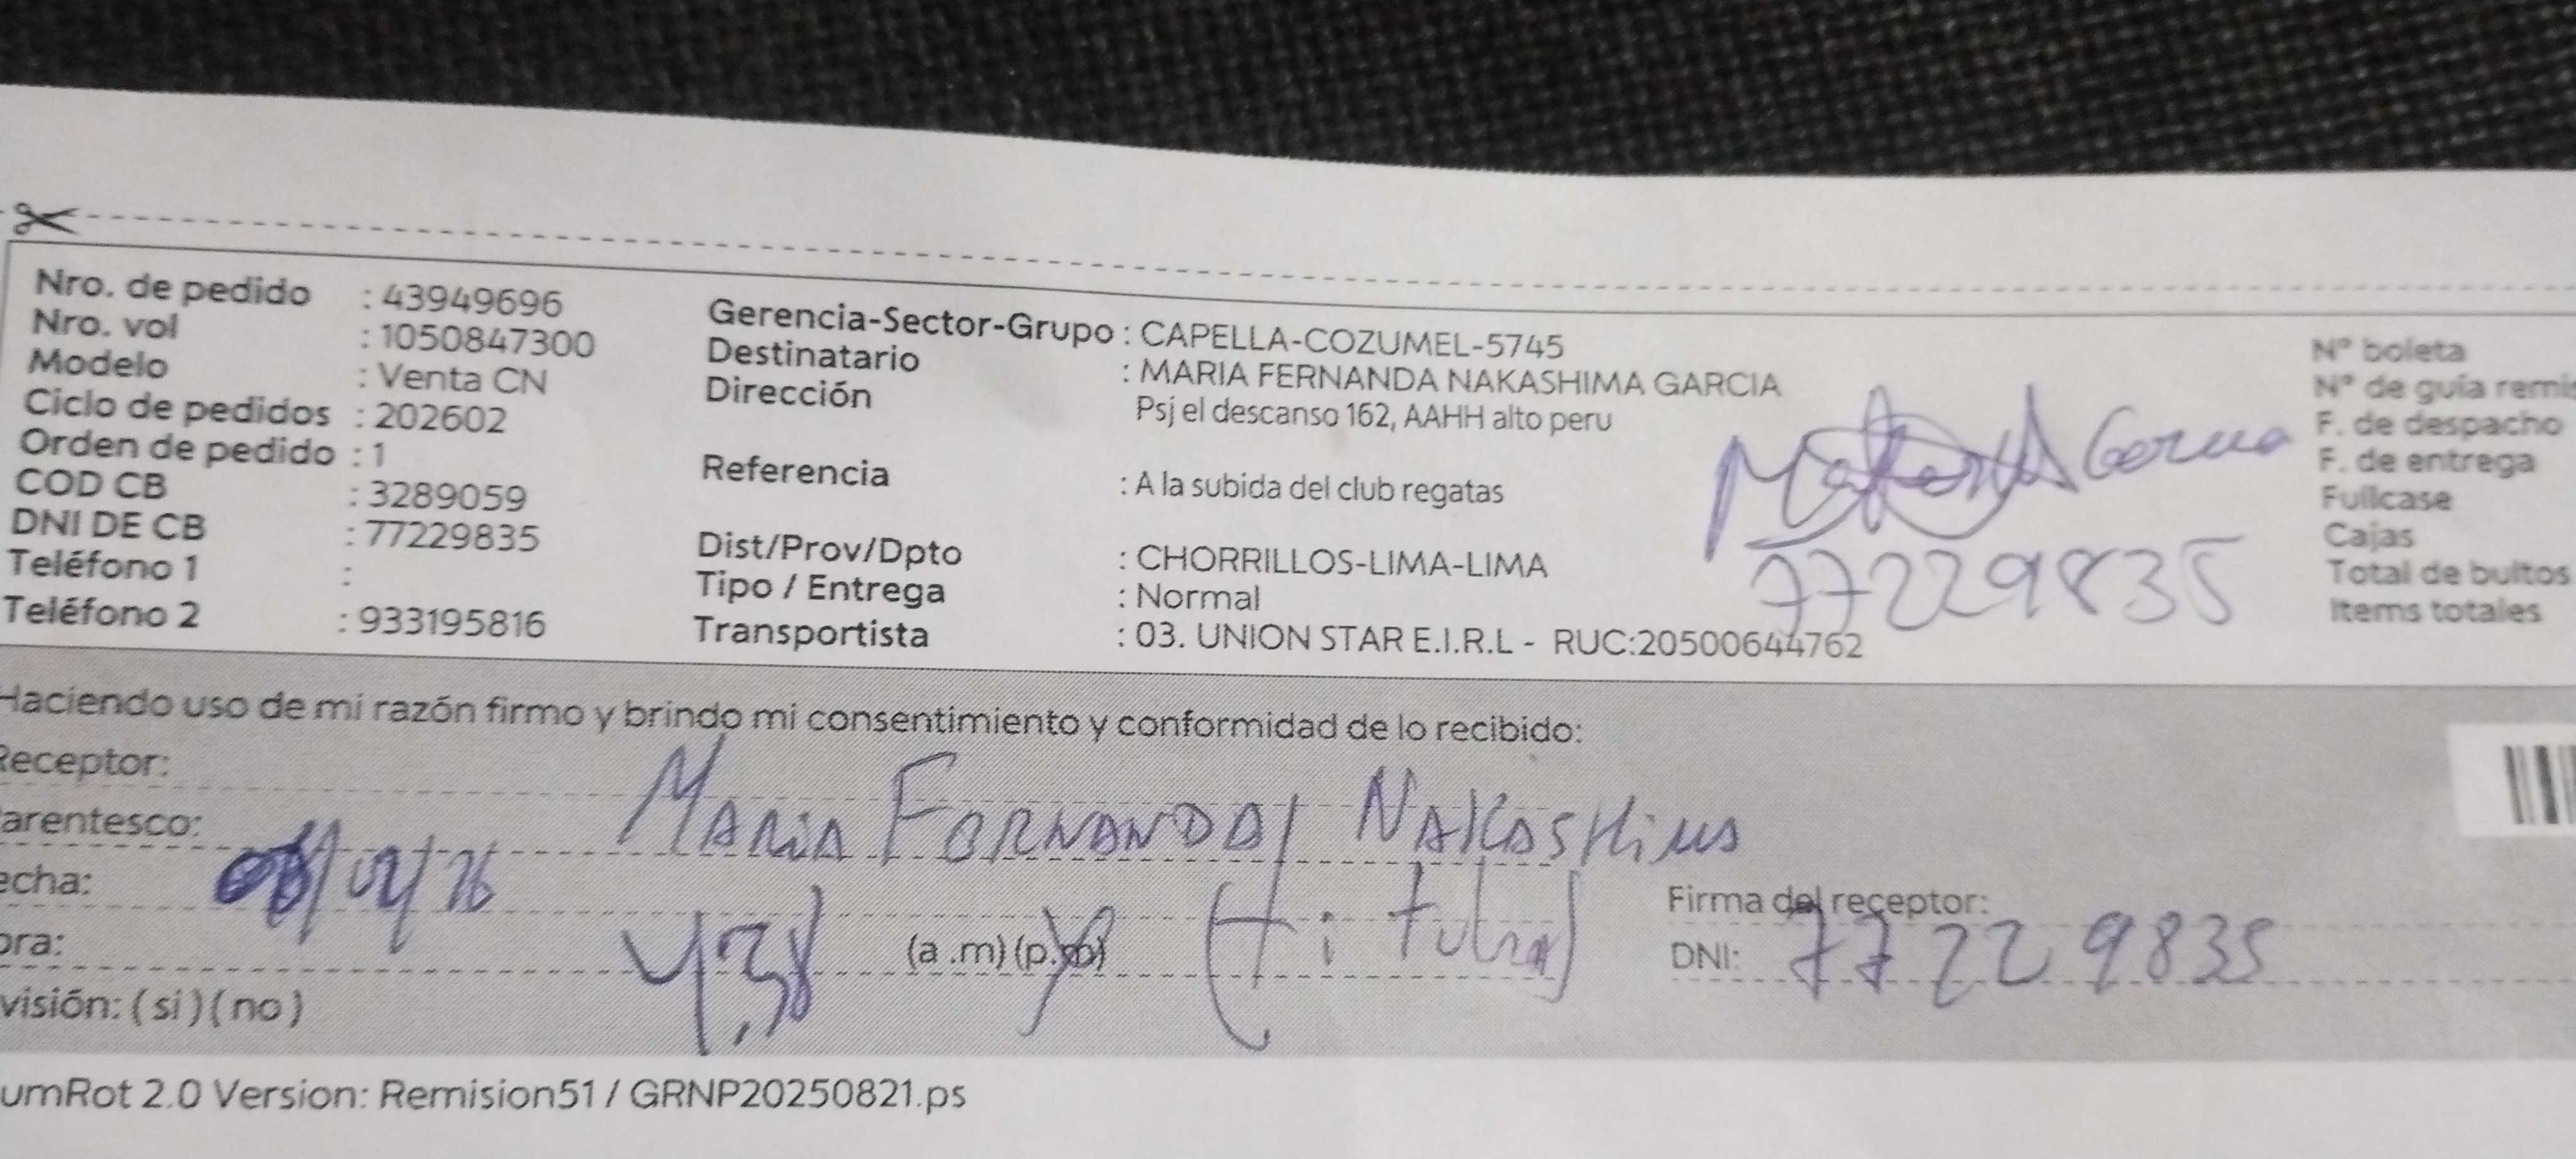 Nro. de pedido : 43949696
Nro. vol : 1050847300
Modelo : Venta CN
Ciclo de pedidos : 202602
Orden de pedido : 1
COD CB : 3289059
DNI DE CB : 77229835
Teléfono 1 :
Teléfono 2 : 933195816
Gerencia-Sector-Grupo : CAPELLA-COZUMEL-5745
Destinatario : MARIA FERNANDA NAKASHIMA GARCIA
Dirección Psj el descanso 162, AAHH alto peru
Referencia : A la subida del club regatas
Dist/Prov/Dpto : CHORRILLOS-LIMA-LIMA
Tipo / Entrega : Normal
Transportista : 03. UNION STAR E.I.R.L - RUC:20500644762
77229835
N° boleta
N° de guia remis
F. de despacho
F. de entrega
Fullcase
Cajas
Total de bultos
Items totales
Haciendo uso de mi razón firmo y brindo mi consentimiento y conformidad de lo recibido:
Receptor:
arentesco: MARIA FERNANDA NAKASHIMA
echa:
ora: 4,38 (a .m) (p.m) (titular)
visión: ( si ) ( no )
Firma del receptor:
DNI: 77229835
umRot 2.0 Version: Remision51 / GRNP20250821.ps